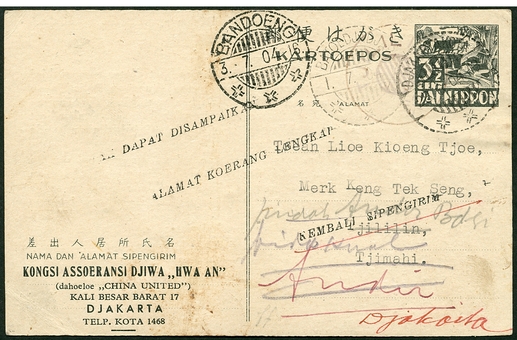 便はがき
KARTOEPOS
BANDOENG
3. 7. 04
3½
DAI NIPPON
名宛 ALAMAT
DAPAT DISAMPAIKA
ALAMAT KOERANG LENGKAP
Tosan Lioe Kioeng Tjoe,
Merk Keng Tek Seng,
pindah Andir
KEMBALI SIPENGIRIM
Tjililin,
Tjimahi.
Andir
Djakarta
差出人居所氏名
NAMA DAN ALAMAT SIPENGIRIM
KONGSI ASSOERANSI DJIWA „HWA AN”
(dahoeloe „CHINA UNITED”)
KALI BESAR BARAT 17
DJAKARTA
TELP. KOTA 1468